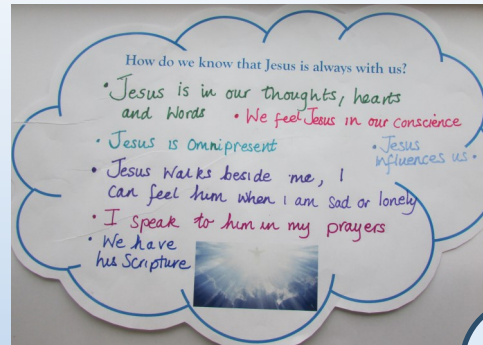 How do we know that Jesus is always with us?
• Jesus is in our thoughts, hearts
and words
• We feel Jesus in our conscience
• Jesus is Omnipresent
• Jesus
influences us.
• Jesus walks beside me, I
can feel him when I am sad or lonely
• I speak to him in my prayers
• We have
his Scripture